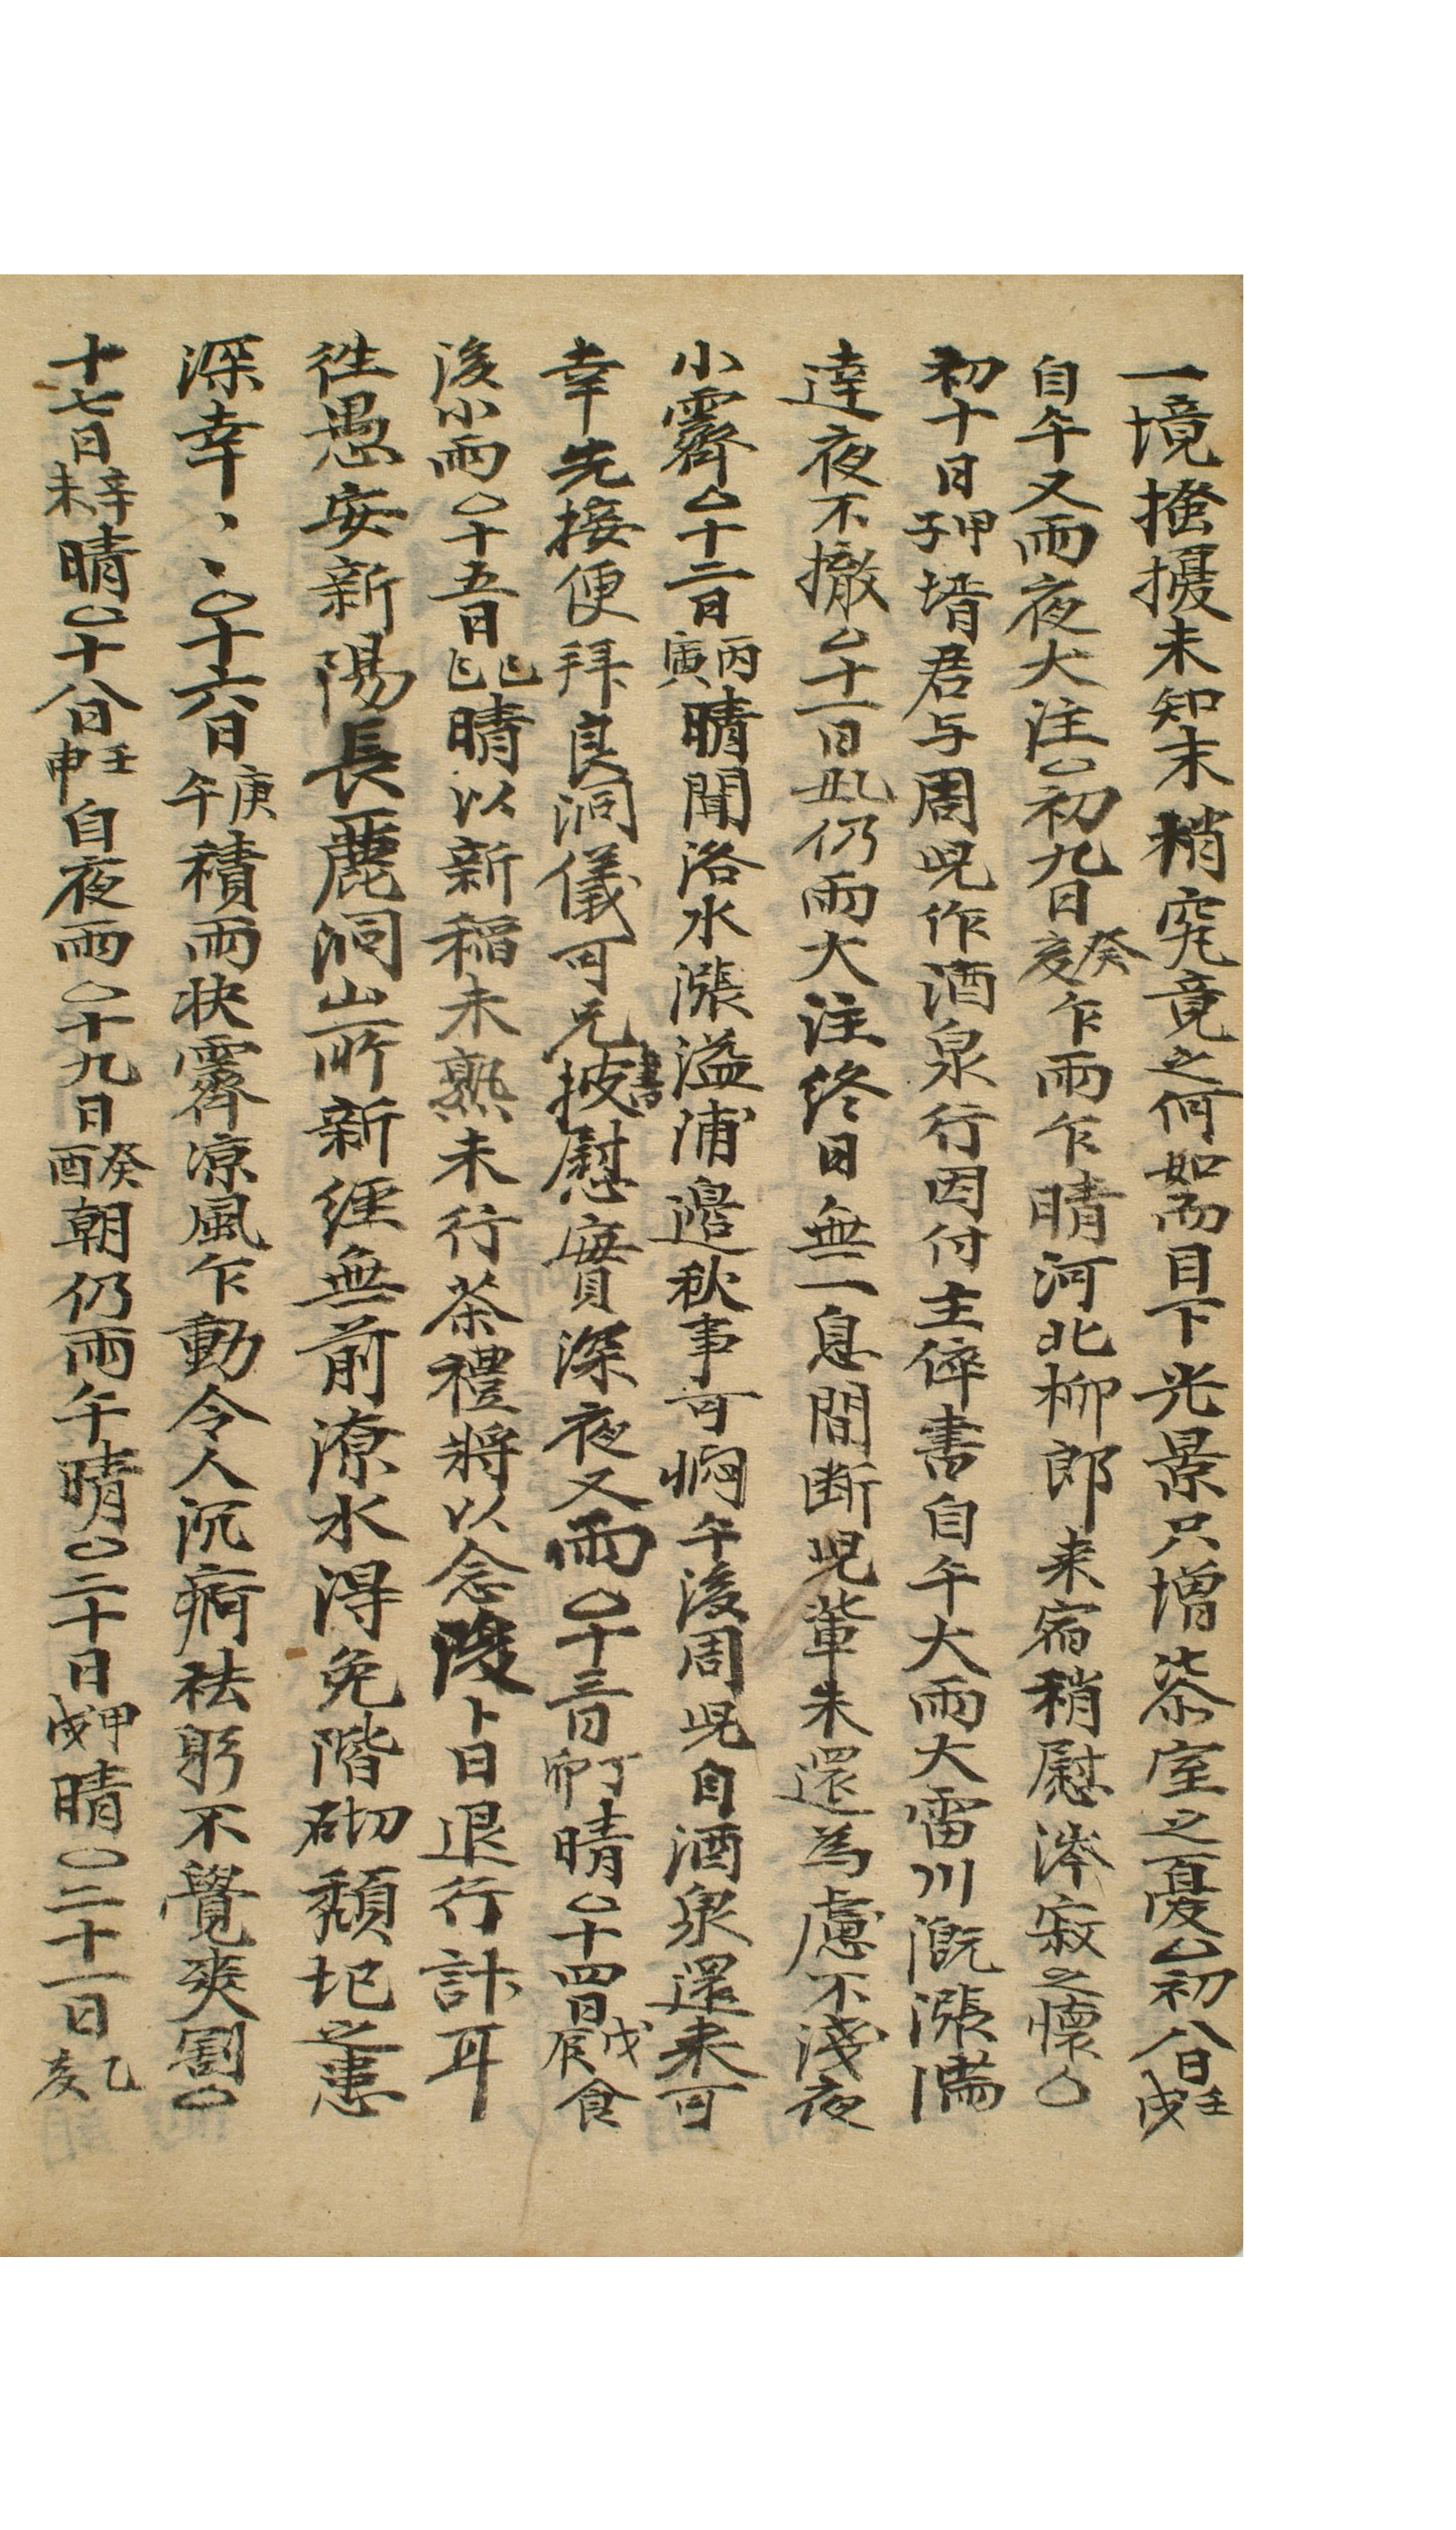 一境搔擾未知末稍究竟之何如而目下光景只增漆室之憂○初八日壬戌
自午又雨夜大注○初九日癸亥乍雨乍晴河北柳郎来宿稍慰涔寂之懷○
初十日甲子壻君与周児作酒泉行因付主倅書自午大雨大雷川漑漲滿
達夜不撤○十一日乙丑仍雨大注終日無一息間断児軰未還為慮不淺夜
小霽○十二日丙寅晴聞洛水漲溢浦邉秋事可悶午後周児自酒泉還来可
幸先接便拜良洞儀可兄書披慰實深夜又雨○十三日丁卯晴○十四日戊辰食
後小雨○十五日己巳晴以新稲未熟未行茶禮將以念後卜日退行計耳
徃愚安新陽長麗洞山所新經無前潦水得免階砌頽圮之患
深幸〻〻○十六日庚午積雨快霽凉風乍動令人沉痾祛躬不覺爽割○
十七日辛未晴○十八日壬申自夜雨○十九日癸酉朝仍雨午晴○二十日甲戌晴○二十一日乙亥